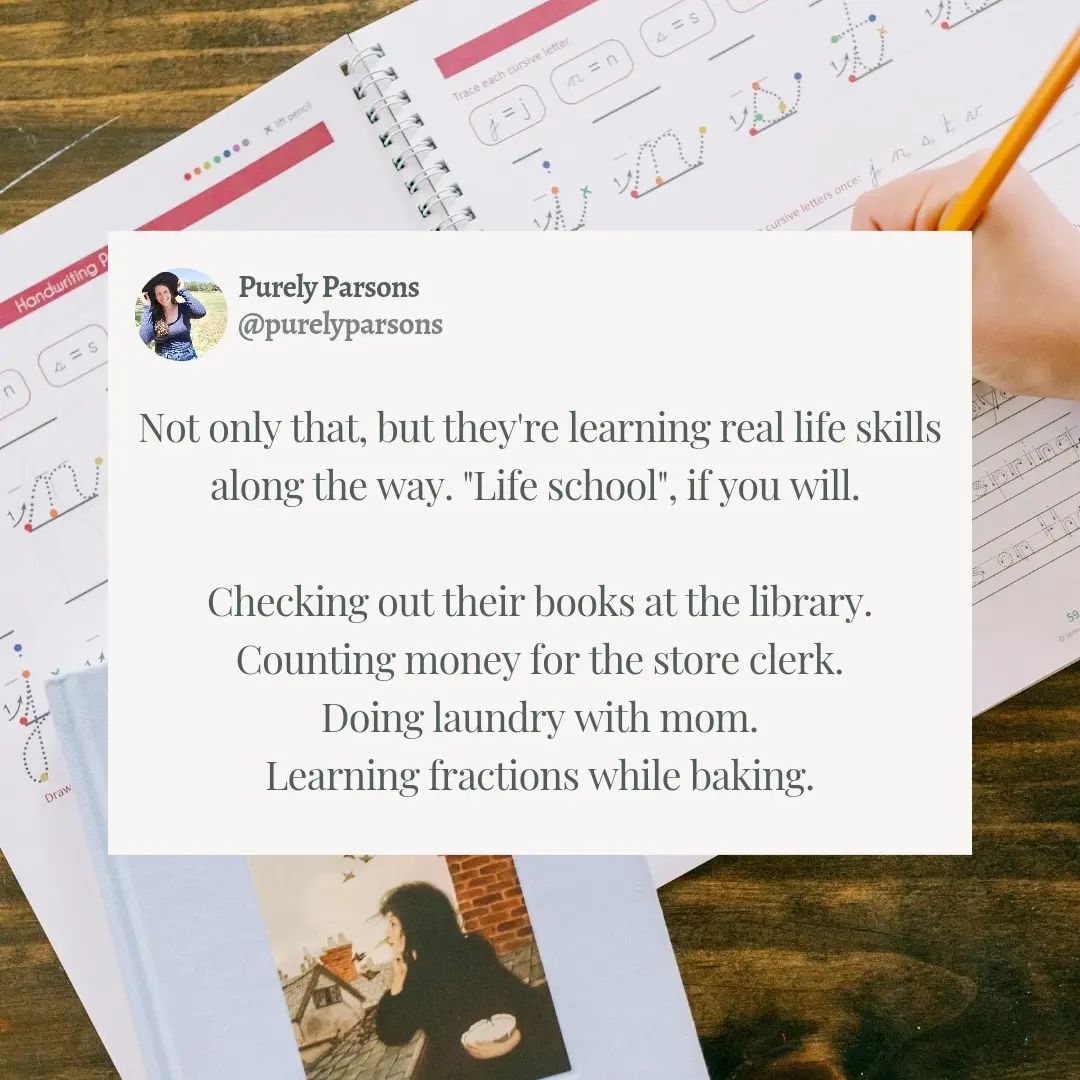 × lift pencil
Trace each cursive letter.
j = j
n = n
s = s
cursive letters once: j, n, s, t, v
Handwriting
s = s
n
Purely Parsons
@purelyparsons
Not only that, but they're learning real life skills
along the way. "Life school", if you will.
Checking out their books at the library.
Counting money for the store clerk.
Doing laundry with mom.
Learning fractions while baking.
spring
on
59
Draw